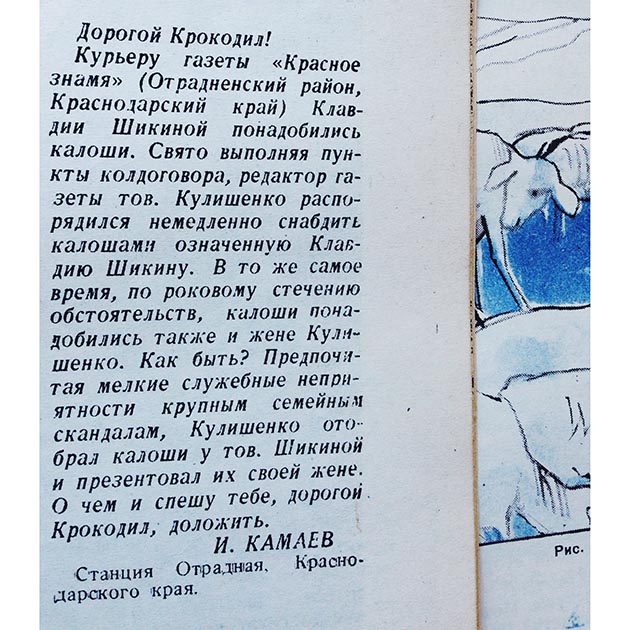 Дорогой Крокодил!
Курьеру газеты «Красное
знамя» (Отрадненский район,
Краснодарский край) Клав-
дии Шикиной понадобились
калоши. Свято выполняя пун-
кты колдоговора, редактор га-
зеты тов. Кулишенко распо-
рядился немедленно снабдить
калошами означенную Клав-
дию Шикину. В то же самое
время, по роковому стечению
обстоятельств, калоши пона-
добились также и жене Кули-
шенко. Как быть? Предпочи-
тая мелкие служебные непри-
ятности крупным семейным
скандалам, Кулишенко ото-
брал калоши у тов. Шикиной
и презентовал их своей жене.
О чем и спешу тебе, дорогой
Крокодил, доложить.
И. КАМАЕВ
Станция Отрадная, Красно-
дарского края.
Рис.